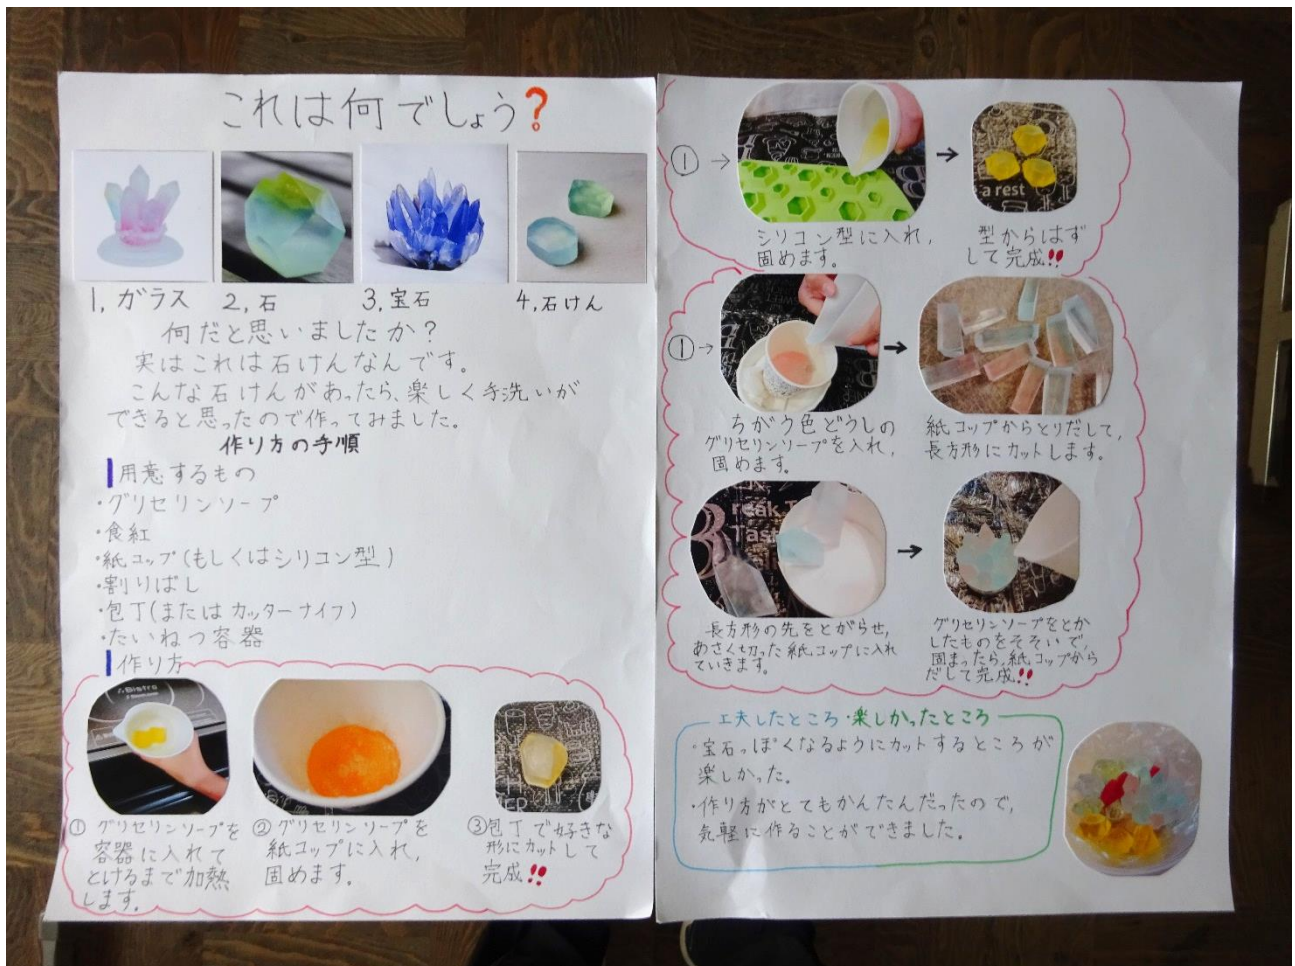 これは何でしょう?
1, ガラス
2, 石
3, 宝石
4, 石けん
何だと思いましたか?
実はこれは石けんなんです。
こんな石けんがあったら、楽しく手洗いが
できると思ったので作ってみました。
作り方の手順
用意するもの
・グリセリンソープ
・食紅
・紙コップ(もしくはシリコン型)
・割りばし
・包丁(またはカッターナイフ)
・たいねつ容器
作り方
Bistro
① グリセリンソープを
容器に入れて
とけるまで加熱
します。
② グリセリンソープを
紙コップに入れ,
固めます。
③包丁で好きな
形にカットして
完成!!
①→
a rest
シリコン型に入れ,
固めます。
型からはず
して完成!!
①→
ちがう色どうしの
グリセリンソープを入れ,
固めます。
紙コップからとりだして,
長方形にカットします。
reak
Tast
長方形の先をとがらせ,
あさく切った紙コップに入れ
ていきます。
グリセリンソープをとか
したものをそそいで,
固まったら,紙コップから
だして完成!!
工夫したところ・楽しかったところ
・宝石っぽくなるようにカットするところが
楽しかった。
・作り方がとてもかんたんだったので,
気軽に作ることができました。